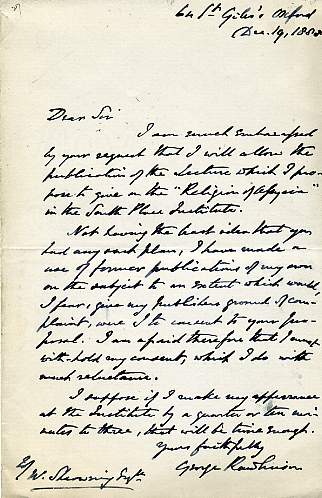 64 St Giles's Oxford
Dec. 19, 1888
Dear Sir
I am much embarrassed
by your request that I will allow the
publication of the Lecture which I pro-
pose to give on the "Religion of Assyria"
in the South Place Institute.
Not having the least idea that you
had any such plan, I have made a
use of former publications of my own
on the subject to an extent which would
I fear, give my publishers ground of com-
plaint, were I to consent to your pro-
posal. I am afraid therefore that I must
with-hold my consent, which I do with
much reluctance.
I suppose if I make my appearance
at the Institute by a quarter or ten mi-
nutes to three, that will be time enough.
Yours faithfully
George Rawlinson
W. Sheowring Esqr.